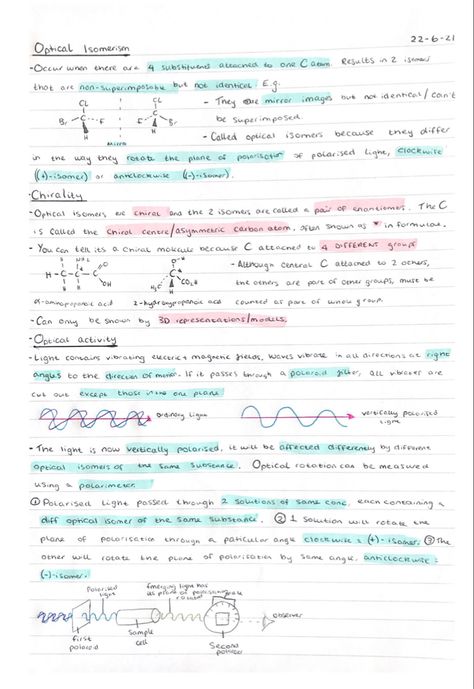 22-6-21
Optical Isomerism
-Occur when there are 4 substituents attached to one C atom. Results in 2 isomers
that are non-superimposable but not identical E.g:
CL CL
C C
Br F F Br
H H
Mirror
- They are mirror images but not identical / can't
be superimposed.
- Called optical isomers because they differ
in the way they rotate the plane of polarisation of polarised light, clockwise
((+)-isomer) or anticlockwise ((-)-isomer).
-Chirality
-Optical isomers are chiral and the 2 isomers are called a pair of enantiomers. The C
is called the chiral centre/asymmetric carbon atom, often shown as * in formulae.
- You can tell its a chiral molecule because C attached to 4 DIFFERENT groups
- Although central C attached to 2 others,
the others are part of other groups, must be
counted as part of whole group.
α-aminopropanoic acid 2-hydroxypropanoic acid
-Can only be shown by 3D representations/models.
-Optical activity
-Light contains vibrating electric + magnetic fields, waves vibrate in all directions at right
angles to the direction of motion. If it passes through a polaroid filter, all vibrations are
cut out except those in the one plane
ordinary light
vertically polarised
light
-The light is now vertically polarised, it will be affected differently by different
optical isomers of the same substance. Optical rotation can be measured
using a polarimeter.
① Polarised Light passed through 2 solutions of same conc, each containing a
diff optical isomer of the same substance. ② 1 solution will rotate the
plane of polarisation through a paticular angle clockwise = (+)- isomer. ③ The
other will rotate the plane of polarisation by same angle, anticlockwise =
(-)-isomer.
Polarised
light
Emerging light has
its plane of polarisation
rotated
first
polaroid
Sample
cell
Second
polaroid
observer